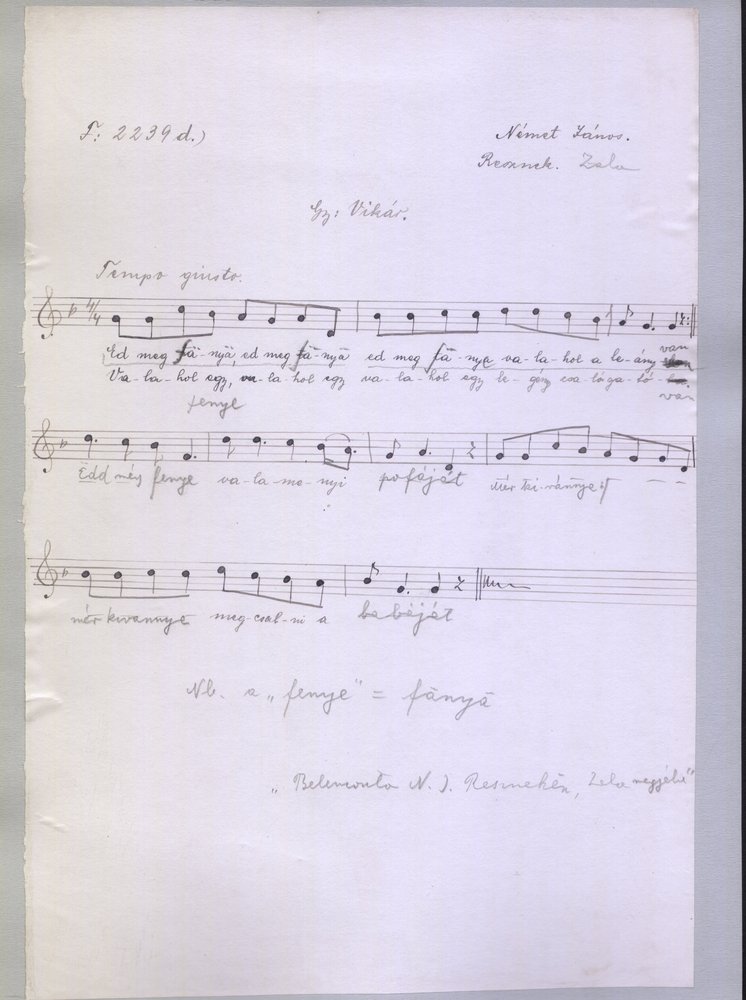 F: 2239 d.)
Német János.
Resznek. Zala
Gy: Vikár.
Tempo giusto.
4/4
Ed meg fä-nyä, ed meg fä-nyä ed meg fä-nyä va-la-hol a le-ány van
Va-la-hol egy, va-la-hol egy va-la-hol egy le-gény csa-lóga-tó-
fenye van
Edd még fenye va-la-me-nyi pofáját mér ki-vánnye
mér kivannye meg-csal-ni a babáját
Nb. a „fenye" = fänyä
„Belemonta N. J. Resznekën, Zala megyébe"